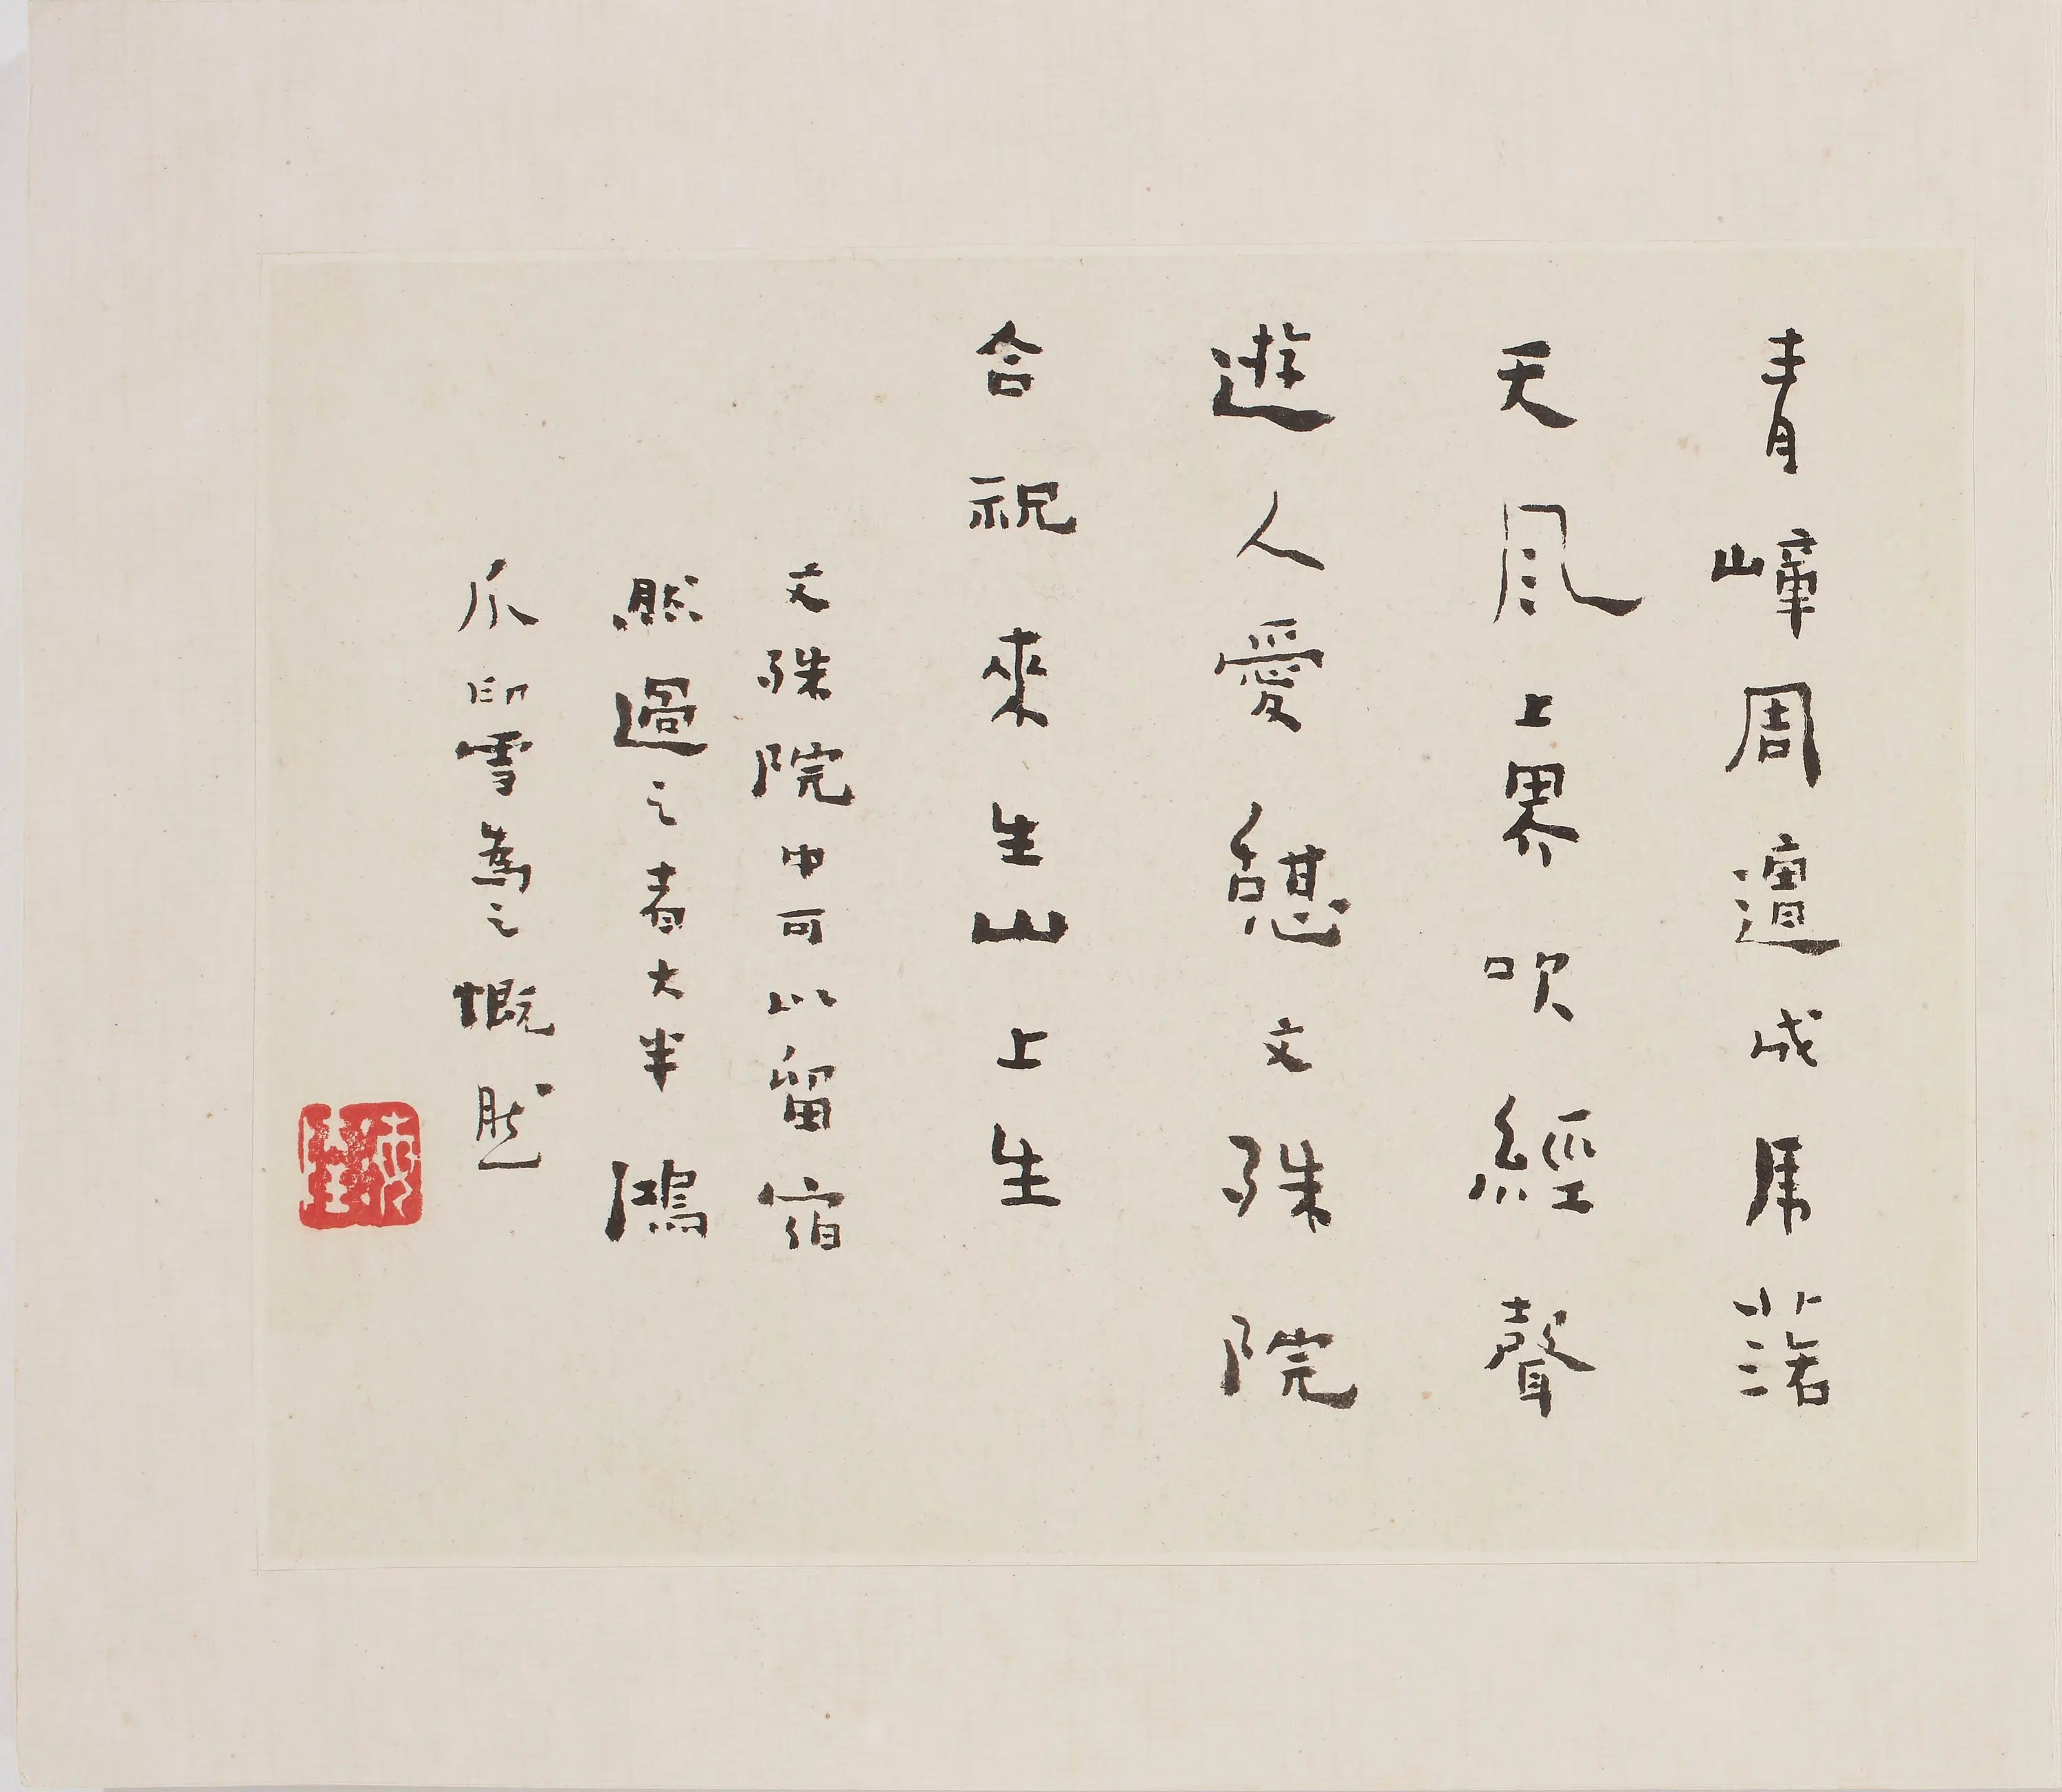 青嶂周遭成虎落
天風上界吹經聲
遊人愛憩文殊院
合祝來生山上生
文殊院中可以留宿
然過之者大半鴻
爪印雪為之慨然